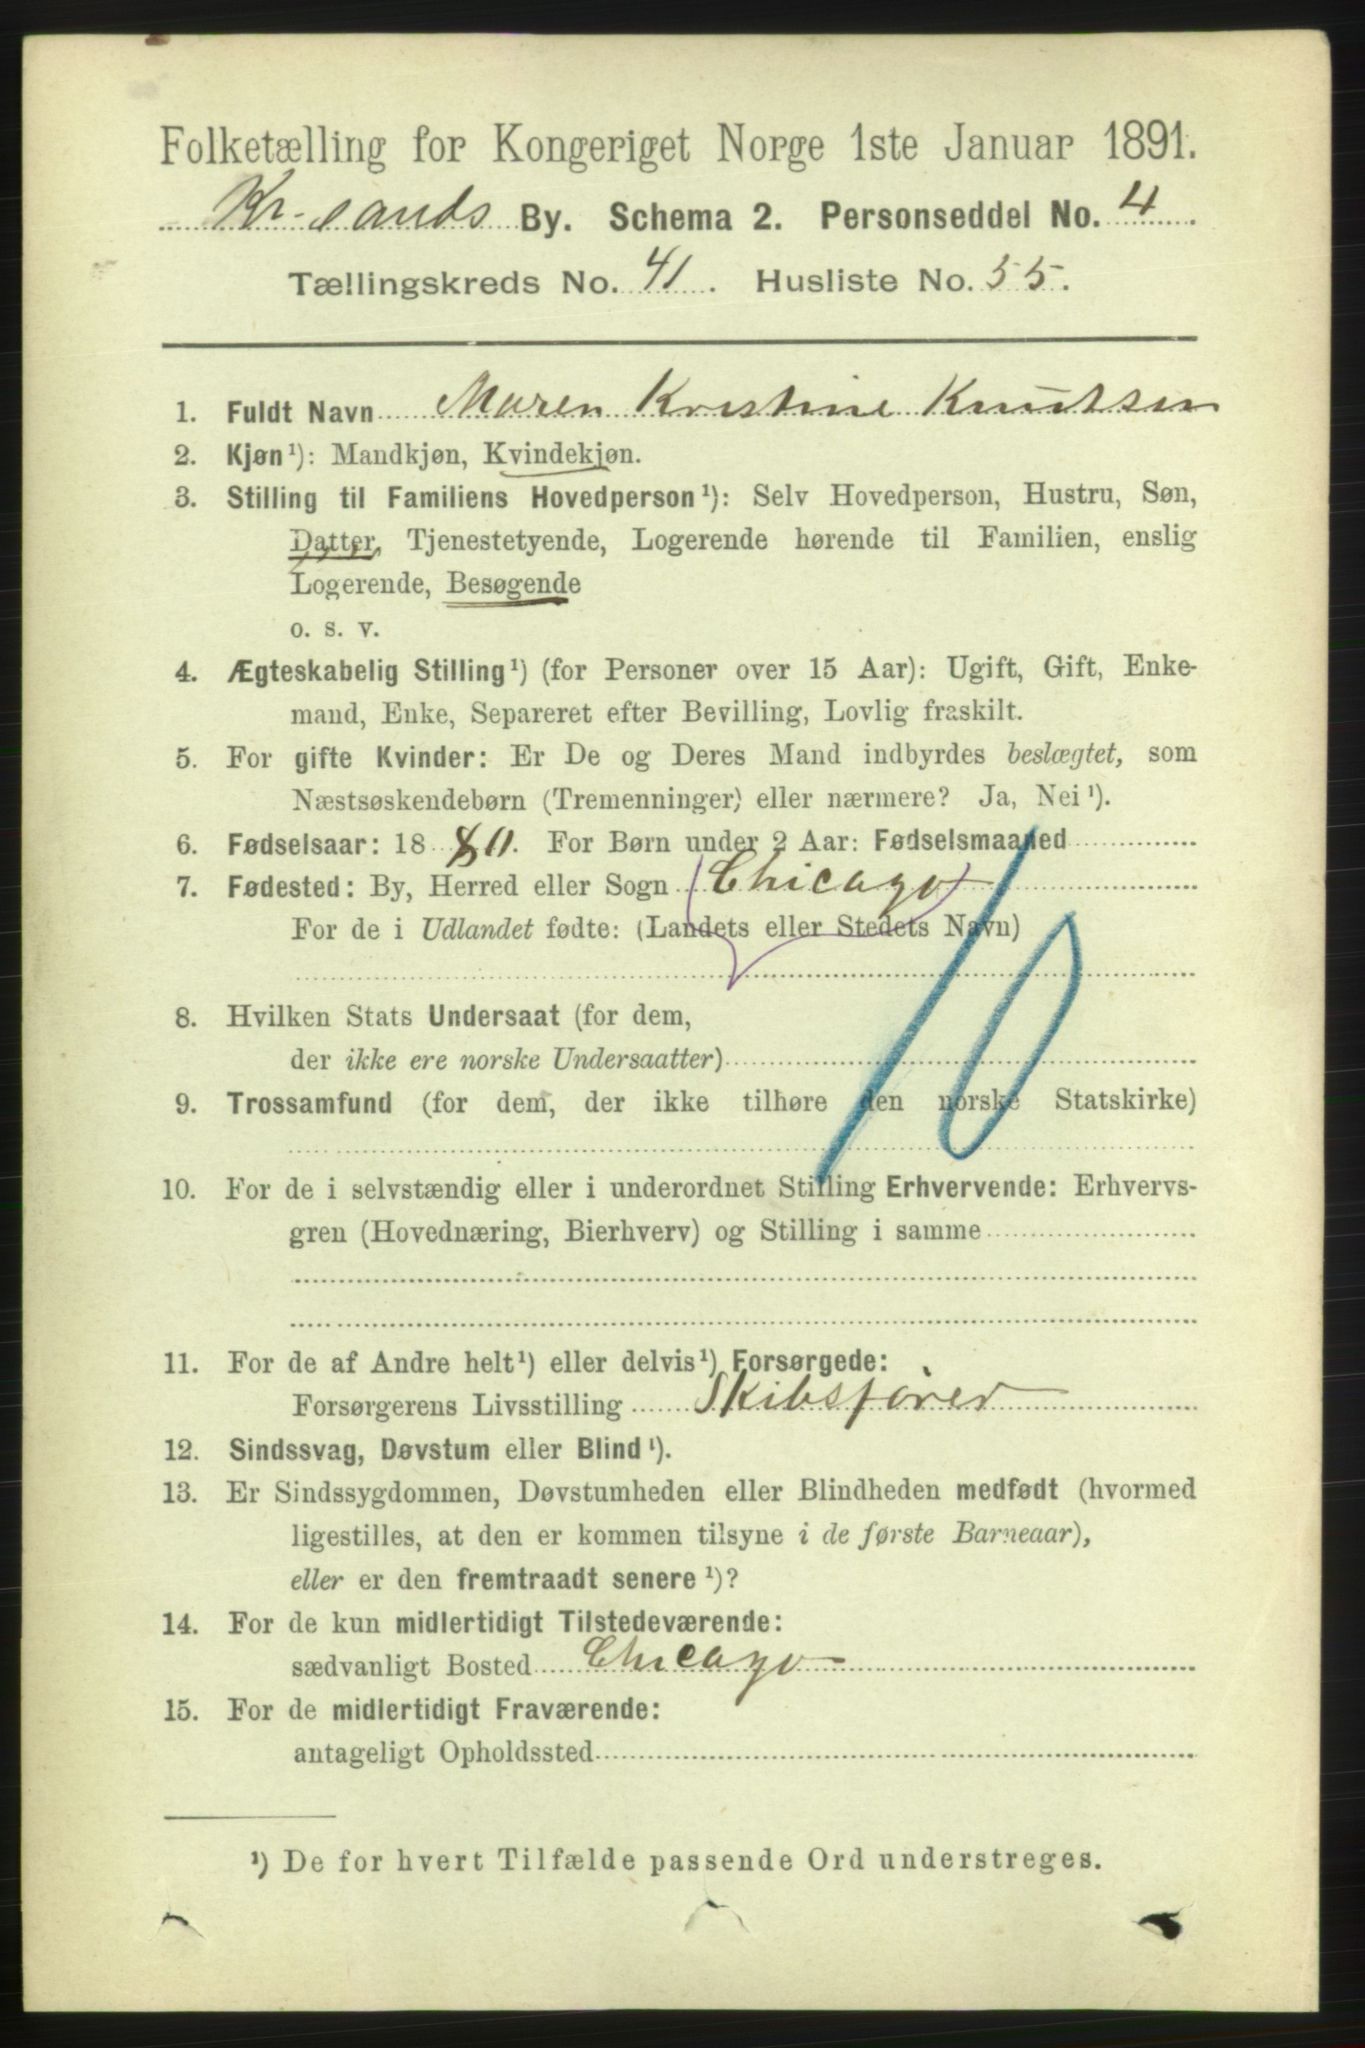 Folketælling for Kongeriget Norge 1ste Januar 1891.
Kr-sands By. Schema 2. Personseddel No. 4
Tællingskreds No. 41. Husliste No. 55.
1. Fuldt Navn Maren Kristine Knutsen
2. Kjøn ¹): Mandkjøn, Kvindekjøn.
3. Stilling til Familiens Hovedperson ¹): Selv Hovedperson, Hustru, Søn,
Datter, Tjenestetyende, Logerende hørende til Familien, enslig
Logerende, Besøgende
o. s. v.
4. Ægteskabelig Stilling ¹) (for Personer over 15 Aar): Ugift, Gift, Enke-
mand, Enke, Separeret efter Bevilling, Lovlig fraskilt.
5. For gifte Kvinder: Er De og Deres Mand indbyrdes beslægtet, som
Næstsøskendebørn (Tremenninger) eller nærmere? Ja, Nei ¹).
6. Fødselsaar: 18 80. For Børn under 2 Aar: Fødselsmaaned
7. Fødested: By, Herred eller Sogn Chicago
For de i Udlandet fødte: (Landets eller Stedets Navn)
10
8. Hvilken Stats Undersaat (for dem,
der ikke ere norske Undersaatter)
9. Trossamfund (for dem, der ikke tilhøre den norske Statskirke)
10. For de i selvstændig eller i underordnet Stilling Erhvervende: Erhvervs-
gren (Hovednæring, Bierhverv) og Stilling i samme
11. For de af Andre helt ¹) eller delvis ¹) Forsørgede:
Forsørgerens Livsstilling Skibsfører
12. Sindssvag, Døvstum eller Blind ¹).
13. Er Sindssygdommen, Døvstumheden eller Blindheden medfødt (hvormed
ligestilles, at den er kommen tilsyne i de første Barneaar),
eller er den fremtraadt senere ¹)?
14. For de kun midlertidigt Tilstedeværende:
sædvanligt Bosted Chicago
15. For de midlertidigt Fraværende:
antageligt Opholdssted
¹) De for hvert Tilfælde passende Ord understreges.